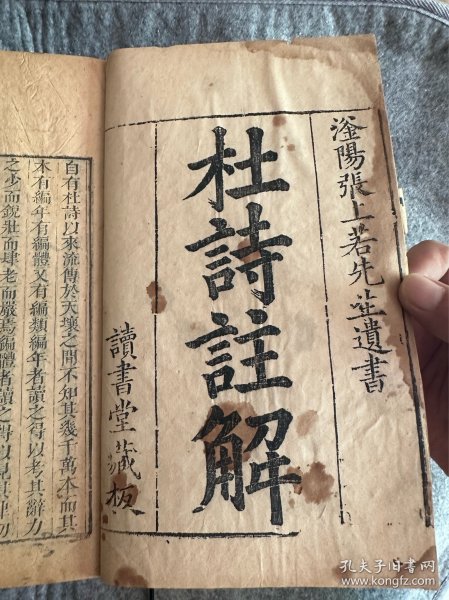 滏陽張上若先生遺書
杜詩註解
讀書堂藏板
自有杜詩以來流傳於天壤之間不知其幾千萬本而其
本有編年有編體又有編類編年者讀之得以考其辭力
之少而銳壯而肆老而嚴焉編體者讀之得以見其
孔夫子旧书网
www.kongfz.com